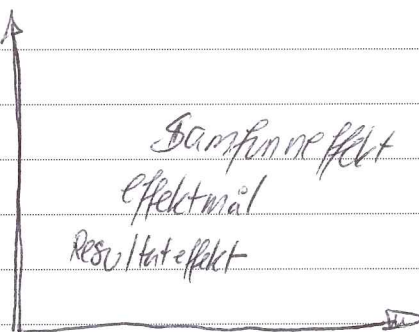 Samfunneffekt
effektmål
Resultateffekt